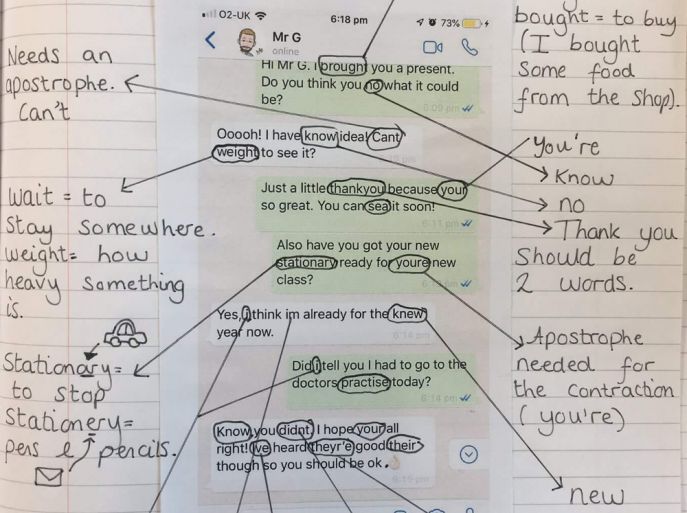 O2-UK 6:18 pm 73%
Mr G
online
Hi Mr G. I brought you a present.
Do you think you no what it could
be?
6:09 pm
Ooooh! I have know idea! Cant
weight to see it?
pm
Just a little thankyou because your
so great. You can sea it soon!
6:11 pm
Also have you got your new
stationary ready for youre new
class?
Yes, i think im already for the knew
year now.
6:14 pm
Did i tell you I had to go to the
doctors practise today?
6:14 pm
Know you didnt, I hope your all
right! Ive heard theyr'e good their
though so you should be ok.
6:15 pm
Needs an
apostrophe.
Can't
Wait = to
stay somewhere.
weight = how
heavy something
is.
Stationary =
to stop
Stationery =
pens & pencils.
bought = to buy
(I bought
some food
from the shop).
You're
know
no
Thank you
should be
2 words.
Apostrophe
needed for
the contraction
(you're)
new